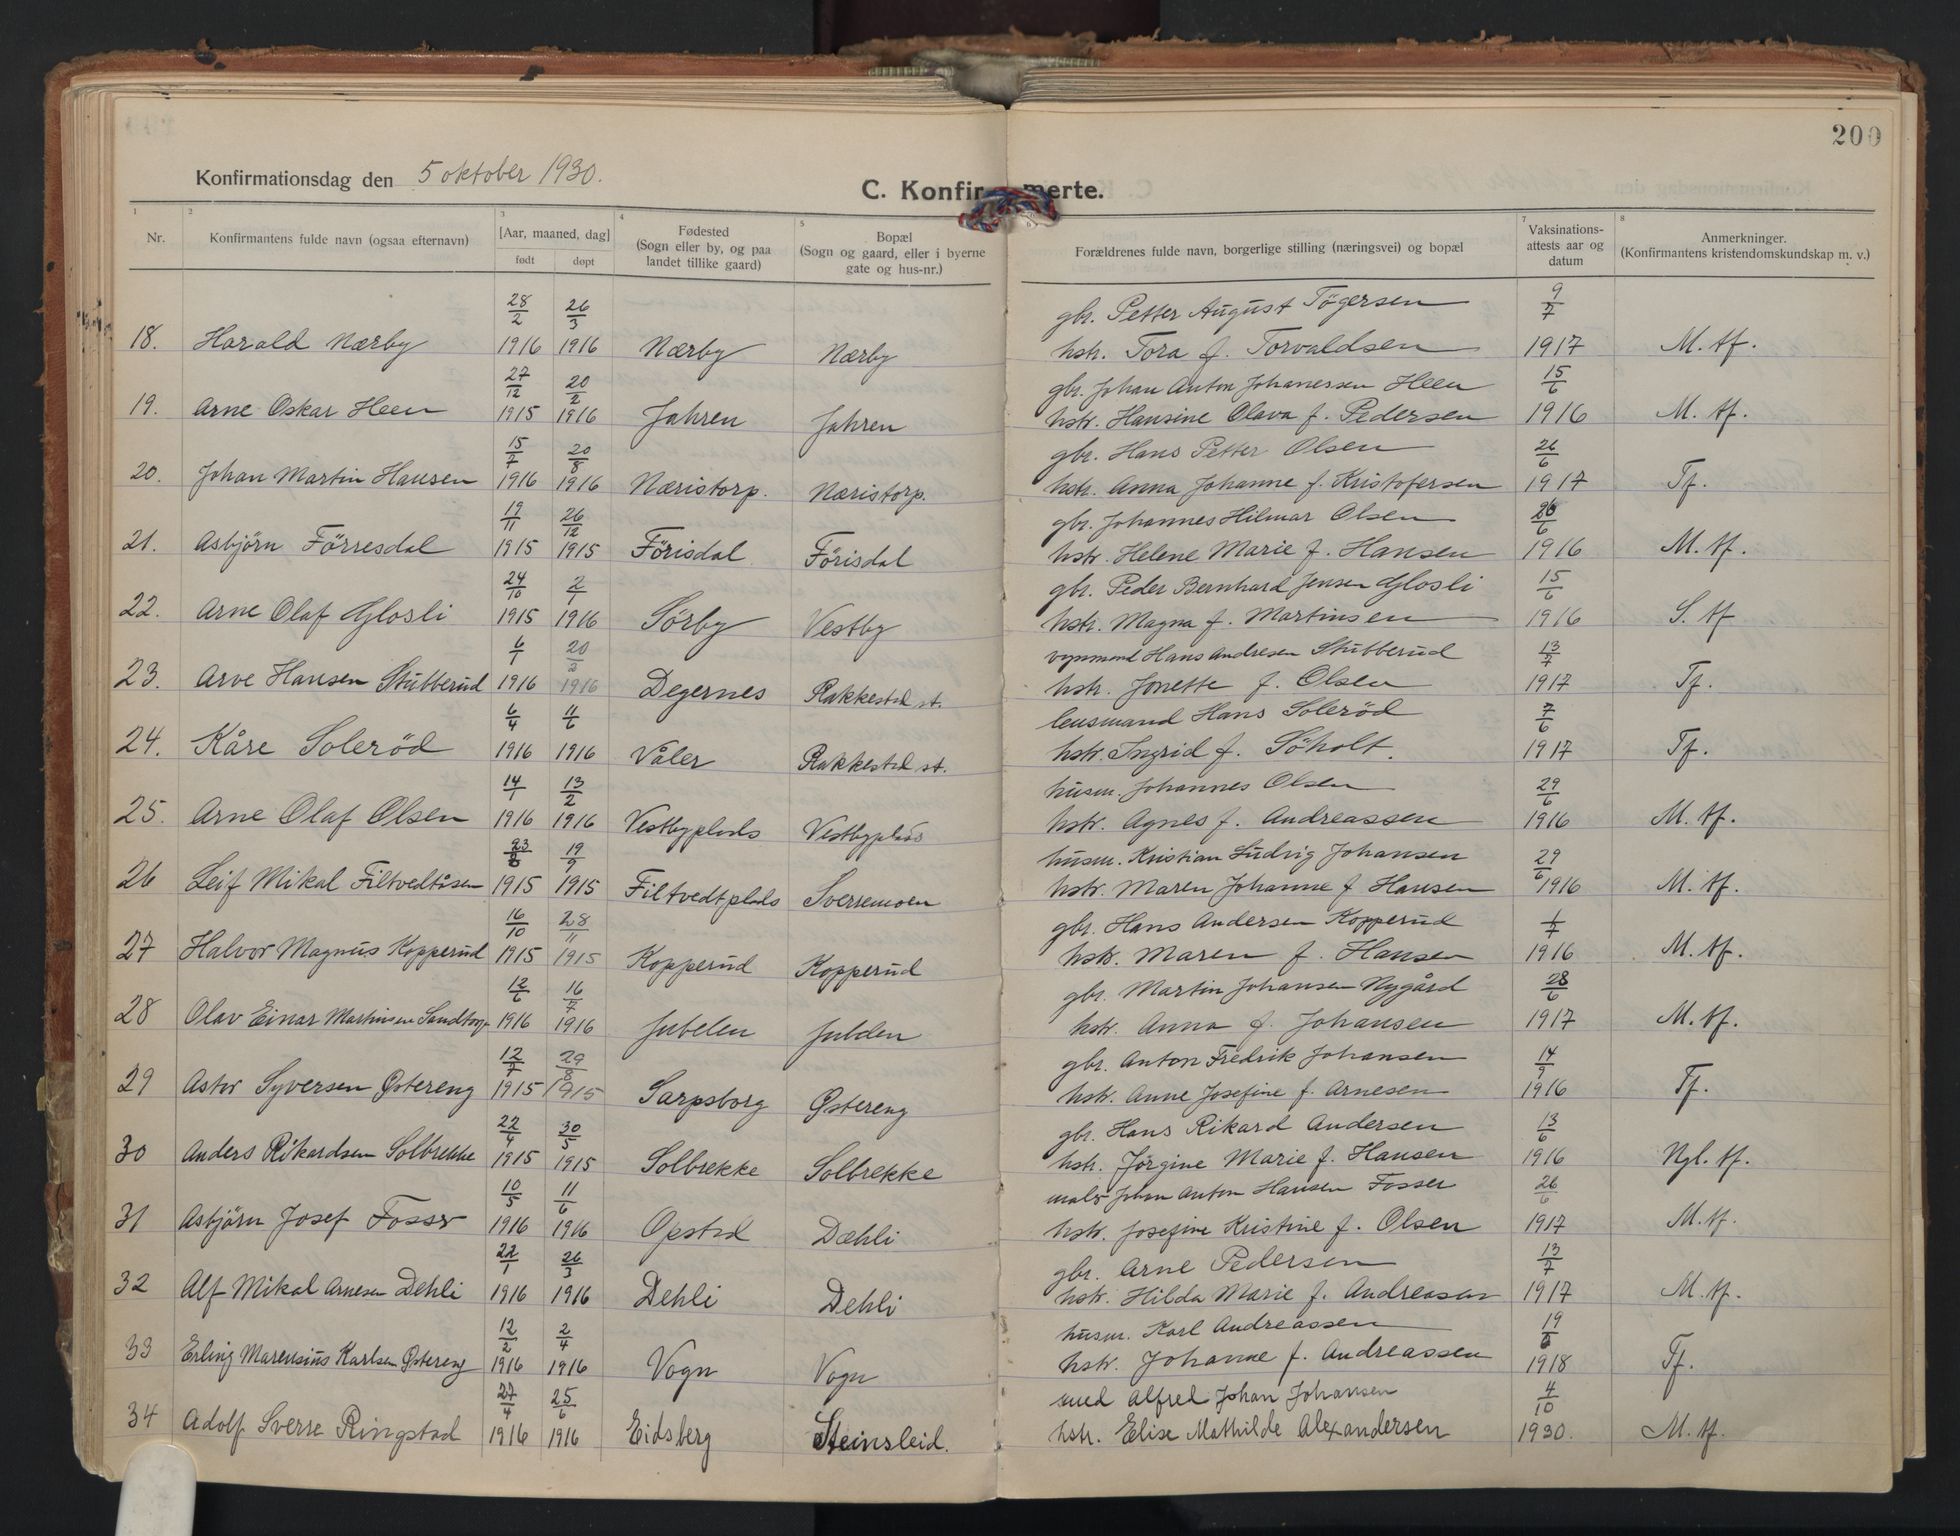 200
Konfirmationsdag den 5 oktober 1930.
C. Konfirmerte.
1 2 3 4 5 7 8
Nr. Konfirmantens fulde navn (ogsaa efternavn) [Aar, maaned, dag] født døpt Fødested (Sogn eller by, og paa landet tillike gaard) Bopæl (Sogn og gaard, eller i byerne gate og hus-nr.) Forældrenes fulde navn, borgerlige stilling (næringsvei) og bopæl Vaksinations-attests aar og datum Anmerkninger. (Konfirmantens kristendomskundskap m. v.)
28/2 26/3 gbr. Petter August Tögersen 9/7
18. Harald Nærby 1916 1916 Nærby Nærby hstr. Tora f. Torvaldsen 1917 M. tf.
27/12 20/2 gbr. Johan Anton Johanersen Heen 15/6
19. Arne Oskar Heen 1915 1916 Jahren Jahren hstr. Hansine Olava f. Pedersen 1916 M. tf.
15/7 20/8 gbr. Hans Petter Olsen 26/6
20. Johan Martin Hansen 1916 1916 Næristorp. Næristorp. hstr. Anna Johanne f. Kristofersen 1917 Tf.
19/11 26/12 gbr. Johannes Hilmar Olsen 26/6
21. Asbjörn Förresdal 1915 1915 Förisdal Förisdal hstr. Helene Marie f. Hansen 1916 M. tf.
24/10 2/1 gbr. Peder Bernhard Jensen Glosli 15/6
22. Arne Olaf Glosli 1915 1916 Sörby Vestby hstr. Magna f. Martinsen 1916 S. tf
6/1 20/2 vognmand Hans Andresen Stubberud 13/7
23. Arve Hansen Stubberud 1916 1916 Degernes Rakkestd st. hstr. Jonette f. Olsen 1917 Tf.
6/4 11/6 lensmand Hans Soleröd 7/6
24. Kåre Soleröd 1916 1916 Våler Rakkestd st. hstr. Ingrid f. Söholt. 1917 Tf.
14/1 13/2 husm. Johannes Olsen 29/6
25. Arne Olaf Olsen 1916 1916 Vestbyplads Vestbyplads hstr. Agnes f. Andreassen 1916 M. tf.
23/8 19/9 husm. Kristian Ludvig Johansen 29/6
26 Leif Mikal Filtvedtåsen 1915 1915 Filtvedtplads Sverremoen hstr. Maren Johanne f. Hansen 1916 M. tf.
16/10 28/11 gbr. Hans Andersen Kopperud 1/7
27 Halvor Magnus Kopperud 1915 1915 Kopperud Kopperud hstr. Maren f. Hansen 1916 M. tf.
12/6 16/7 gbr. Martin Johansen Nygård 28/6
28 Olav Einar Martinsen Sandtorp 1916 1916 Jubelen Julden hstr. Anna f. Johansen 1917 M. tf.
12/7 29/8 gbr. Anton Fredrik Johansen 14/9
29 Astor Syversen Østereng 1915 1915 Sarpsborg Østereng hstr. Anne Josefine f. Arnesen 1916 Tf.
22/4 30/5 gbr. Hans Rikard Andersen 13/6
30 Anders Rikardsen Solbrekke 1915 1915 Solbrekke Solbrekke hstr. Jörgine Marie f. Hansen 1916 Ngl. tf.
10/5 11/6 maler Johan Anton Hansen Fosser 26/6
31 Asbjörn Josef Fosser 1916 1916 Opstd Dæhli hstr. Josefine Kristine f. Olsen 1917 M. tf.
22/1 26/3 gbr. Arne Pedersen 13/7
32 Alf Mikal Arnesen Dehli 1916 1916 Dehli Dehli hstr. Hilda Marie f. Andreasen 1917 M. tf.
12/2 2/4 husm. Karl Andreassen 19/6
33 Erling Marensius Karlsen Østereng 1916 1916 Vogn Vogn hstr. Johanne f. Andreassen 1918 Tf.
27/4 25/6 smed Alfred Johan Johansen 4/10
34 Adolf Sverre Ringstad 1916 1916 Eidsberg Steinsleid. hstr. Elise Mathilde Alexandersen 1930. M. tf.